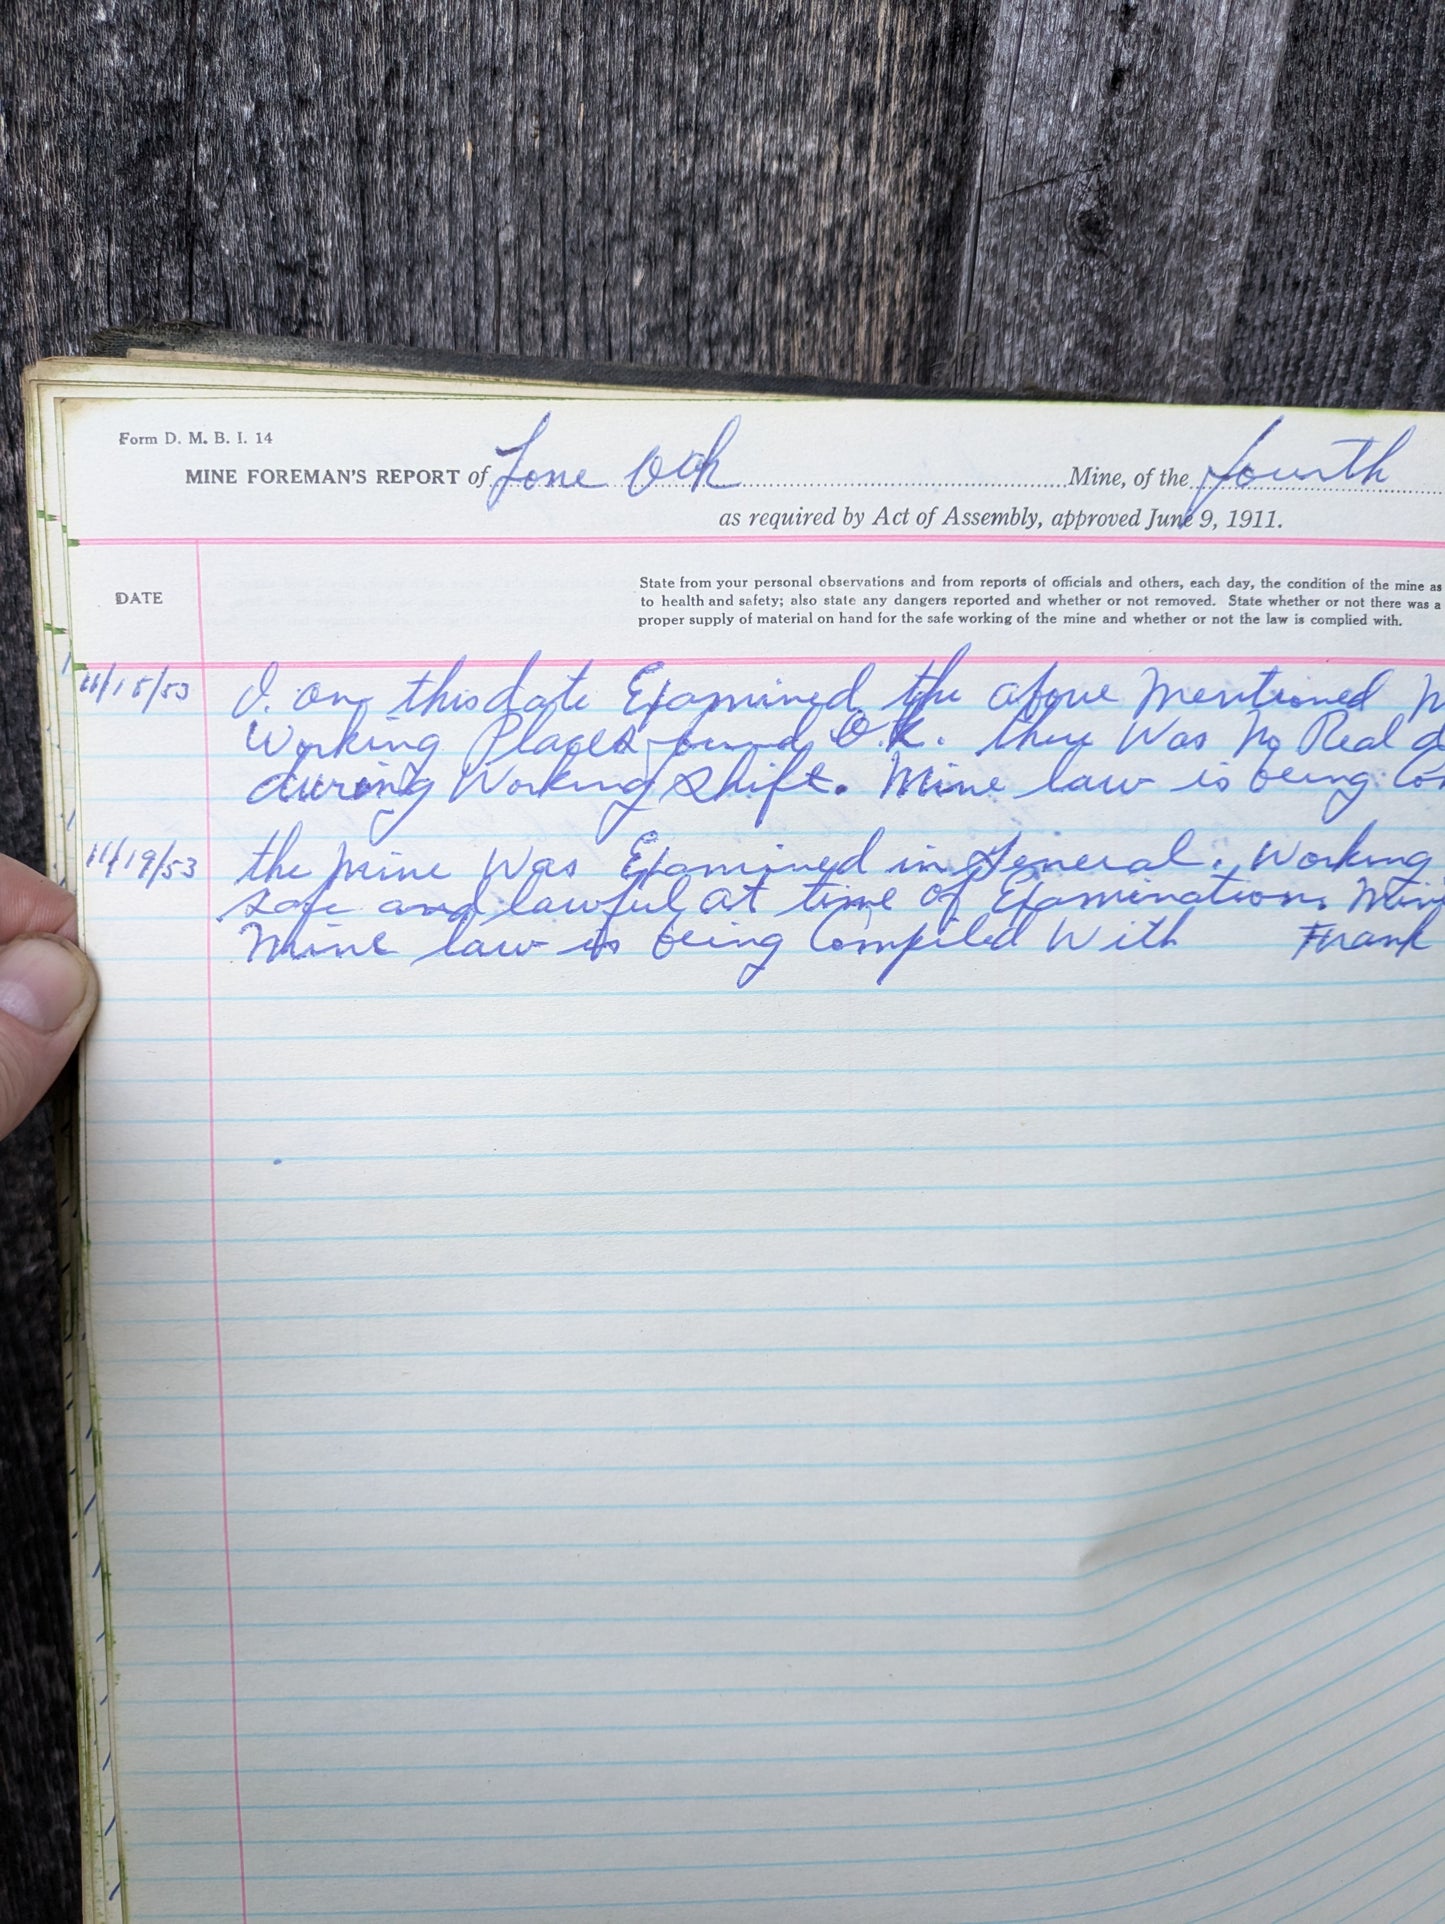 Form D. M. B. I. 14
MINE FOREMAN'S REPORT of Lone Oak Mine, of the fourth
as required by Act of Assembly, approved June 9, 1911.
DATE
State from your personal observations and from reports of officials and others, each day, the condition of the mine as
to health and safety; also state any dangers reported and whether or not removed. State whether or not there was a
proper supply of material on hand for the safe working of the mine and whether or not the law is complied with.
11/18/53 I. on this date Examined the above Mentioned M
Working Places found O.K. there Was No Real d
during Working Shift. Mine law is being Co
11/19/53 the Mine Was Examined in General. Working
safe and lawful at time of Examination. Min
Mine law is being Compiled With Frank